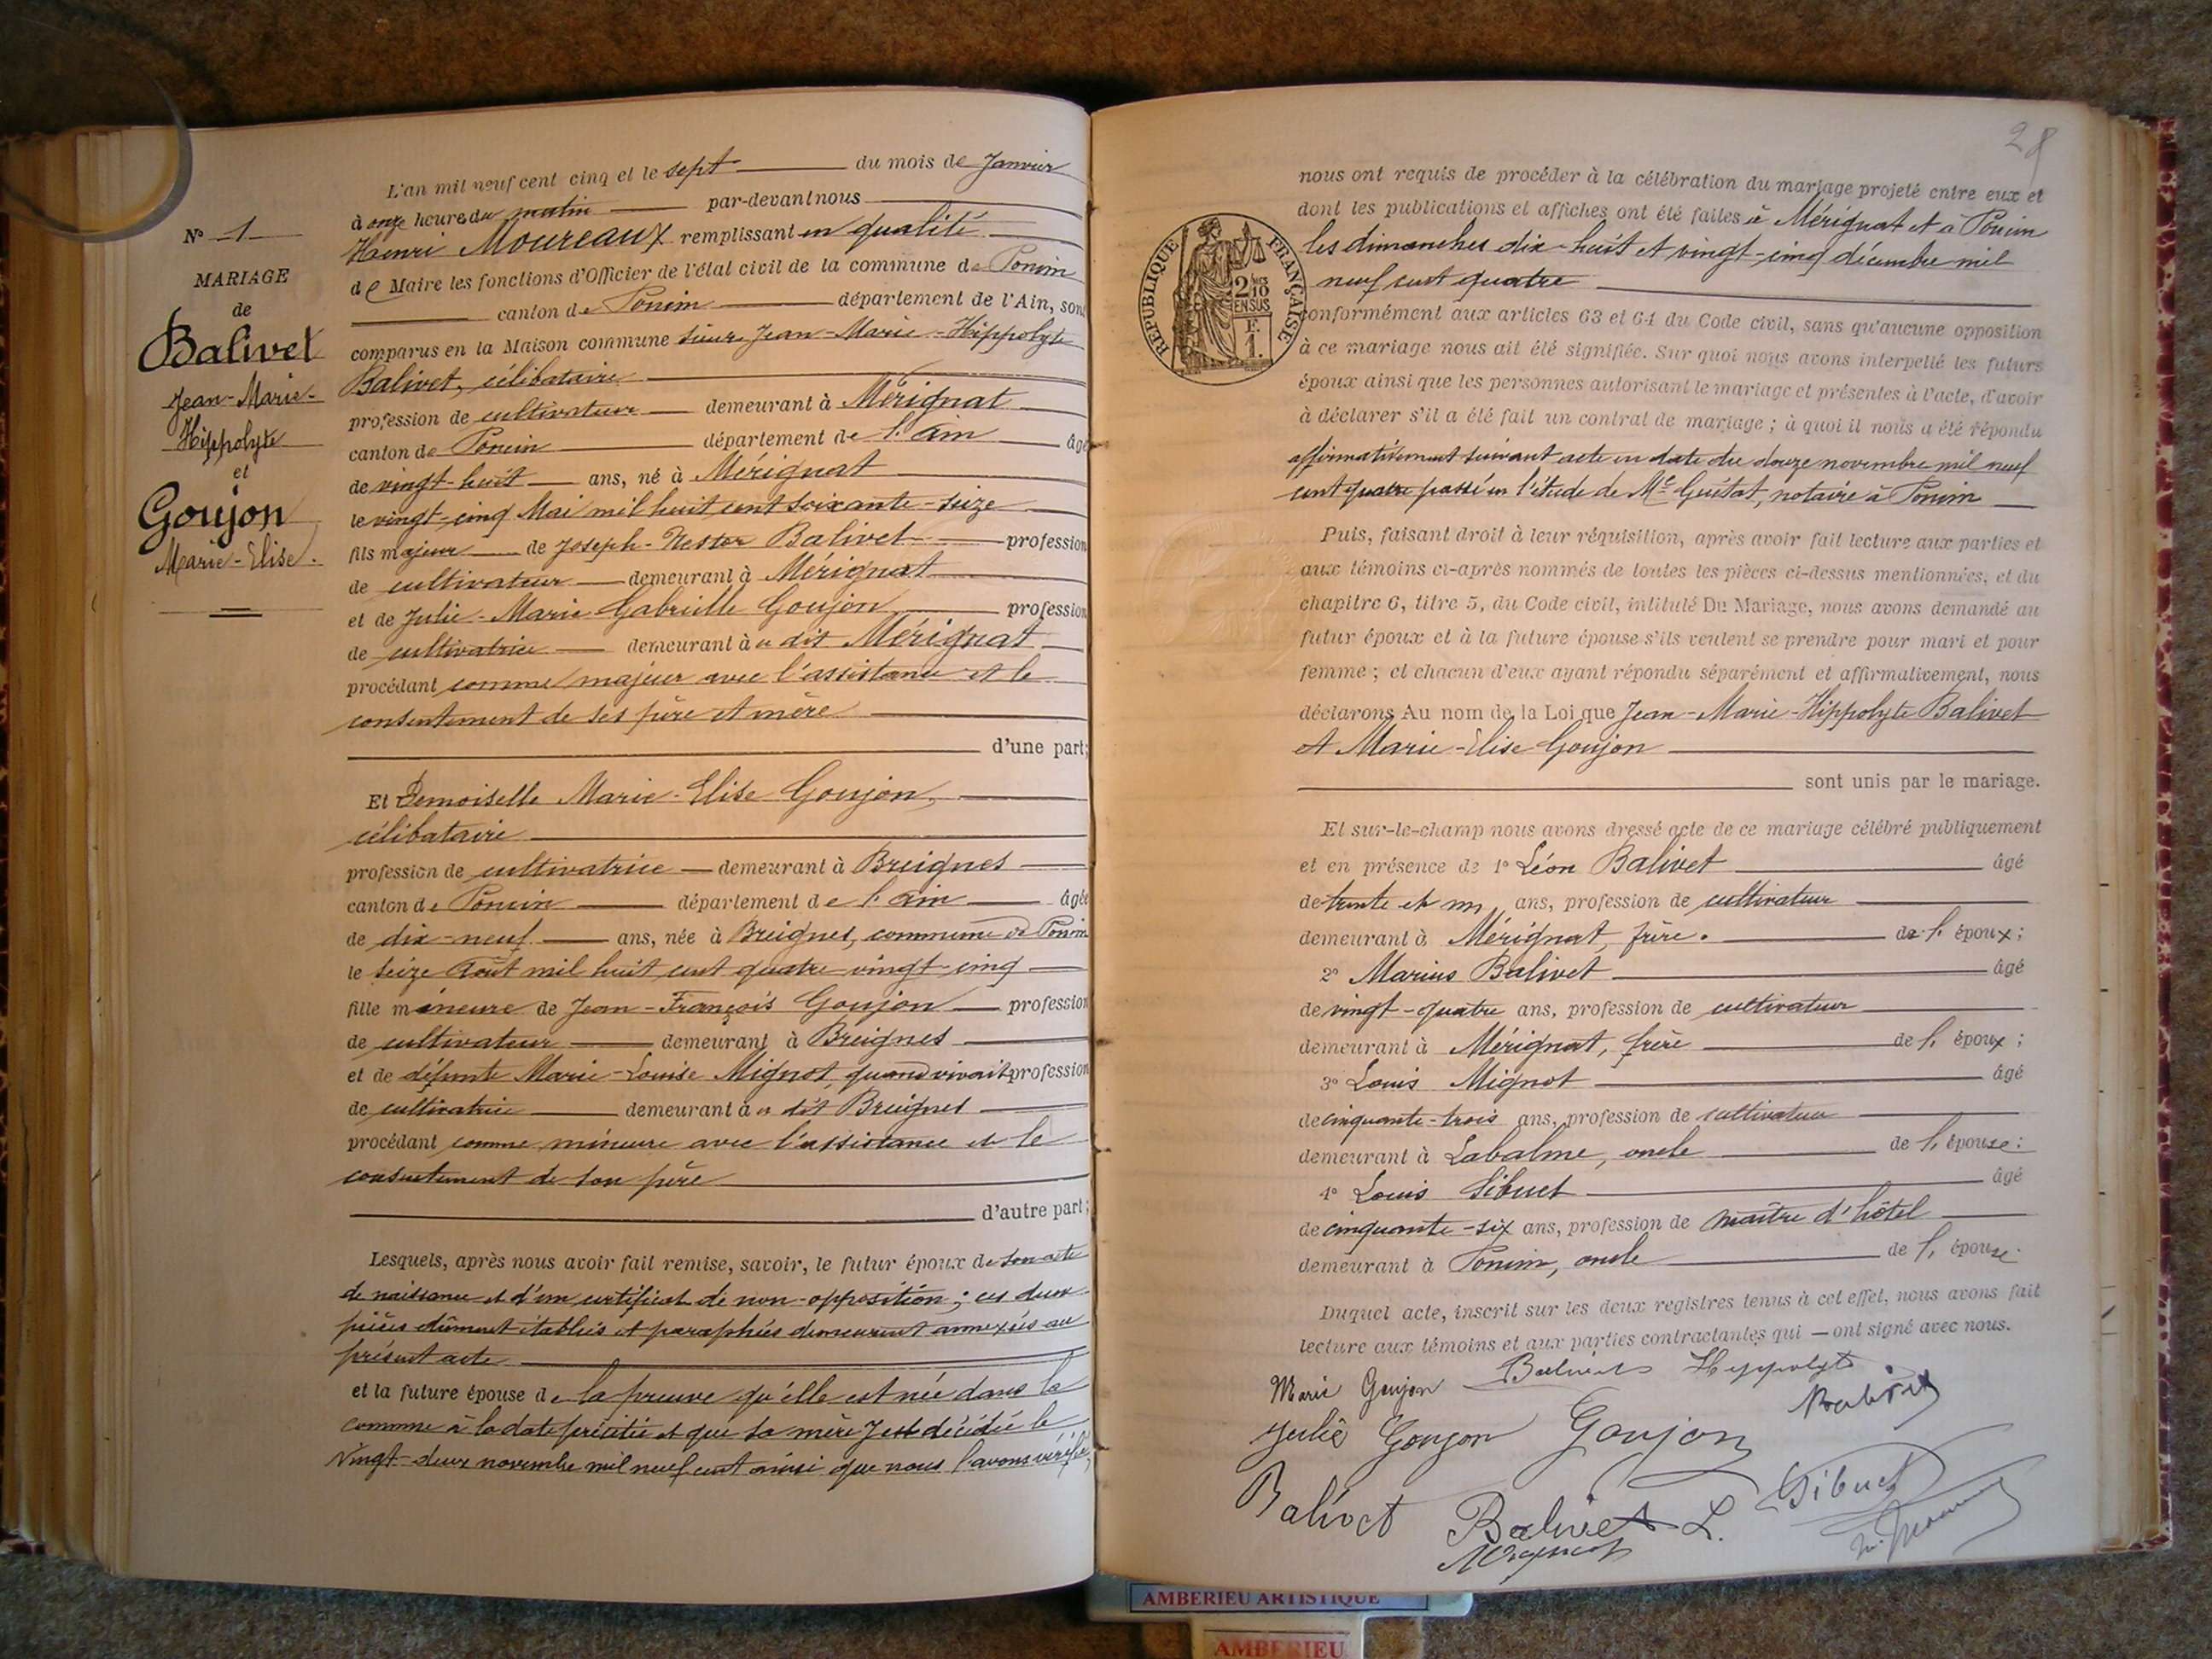 N° 1
MARIAGE
de
Balivet
Jean-Marie-
Hippolyte
et
Goujon
Marie-Elise.
L'an mil neuf cent cinq et le sept du mois de Janvier
à onze heures du matin par-devant nous
Henri Moureaux remplissant en qualité
de Maire les fonctions d'Officier de l'état civil de la commune de Poncin
canton de Poncin département de l'Ain, sont
comparus en la Maison commune sieur Jean-Marie-Hippolyte
Balivet, célibataire
profession de cultivateur demeurant à Mérignat
canton de Poncin département de l'Ain âgé
de vingt-huit ans, né à Mérignat
le vingt-cinq Mai mil huit cent soixante-seize
fils majeur de Joseph-Nestor Balivet profession
de cultivateur demeurant à Mérignat
et de Julie-Marie Gabrielle Goujon, profession
de cultivatrice demeurant à u dit Mérignat
procédant comme majeur avec l'assistance et le
consentement de ses père et mère
d'une part;
Et Demoiselle Marie-Elise Goujon,
célibataire
profession de cultivatrice demeurant à Breignes
canton de Poncin département de l'Ain âgée
de dix-neuf ans, née à Breignes, commune de Poncin
le seize Août mil huit cent quatre vingt-cinq
fille mineure de Jean-François Goujon profession
de cultivateur demeurant à Breignes
et de défunte Marie-Louise Mignot, quand vivait profession
de cultivatrice demeurant à u dit Breignes
procédant comme mineure avec l'assistance et le
consentement de son père
d'autre part;
Lesquels, après nous avoir fait remise, savoir, le futur époux de son acte
de naissance et d'un certificat de non-opposition; ces deux
pièces dûment établies et paraphées demeurent annexées au
présent acte
et la future épouse de la preuve qu'elle est née dans la
commune à la date précitée et que sa mère y est décédée le
vingt-deux novembre mil neuf cent ainsi que nous l'avons vérifié,
28
nous ont requis de procéder à la célébration du mariage projeté entre eux et
dont les publications et affiches ont été faites à Mérignat et à Poncin
les dimanches dix-huit et vingt-cinq décembre mil
neuf cent quatre
RÉPUBLIQUE FRANÇAISE
2/10 EN SUS
F. 1.
conformément aux articles 63 et 64 du Code civil, sans qu'aucune opposition
à ce mariage nous ait été signifiée. Sur quoi nous avons interpellé les futurs
époux ainsi que les personnes autorisant le mariage et présentes à l'acte, d'avoir
à déclarer s'il a été fait un contrat de mariage; à quoi il nous a été répondu
affirmativement suivant acte en date du douze novembre mil neuf
cent quatre passé en l'étude de Me Guétat, notaire à Poncin
Puis, faisant droit à leur réquisition, après avoir fait lecture aux parties et
aux témoins ci-après nommés de toutes les pièces ci-dessus mentionnées, et du
chapitre 6, titre 5, du Code civil, intitulé Du Mariage, nous avons demandé au
futur époux et à la future épouse s'ils veulent se prendre pour mari et pour
femme; et chacun d'eux ayant répondu séparément et affirmativement, nous
déclarons Au nom de la Loi que Jean-Marie-Hippolyte Balivet
et Marie-Elise Goujon
sont unis par le mariage.
Et sur-le-champ nous avons dressé acte de ce mariage célébré publiquement
et en présence de 1° Léon Balivet âgé
de trente et un ans, profession de cultivateur
demeurant à Mérignat, frère de l' époux;
2° Marius Balivet âgé
de vingt-quatre ans, profession de cultivateur
demeurant à Mérignat, frère de l' époux;
3° Louis Mignot âgé
de cinquante-trois ans, profession de cultivateur
demeurant à Labalme, oncle de l' épouse:
4° Louis Sibuet âgé
de cinquante-six ans, profession de maître d'hôtel
demeurant à Poncin, oncle de l' épouse.
Duquel acte, inscrit sur les deux registres tenus à cet effet, nous avons fait
lecture aux témoins et aux parties contractantes qui — ont signé avec nous.
Marie Goujon Balivet Hippolyte
Julie Goujon Goujon Balivet
Balivet Balivet L. Sibuet
AMBERIEU ARTISTIQUE
AMBERIEU